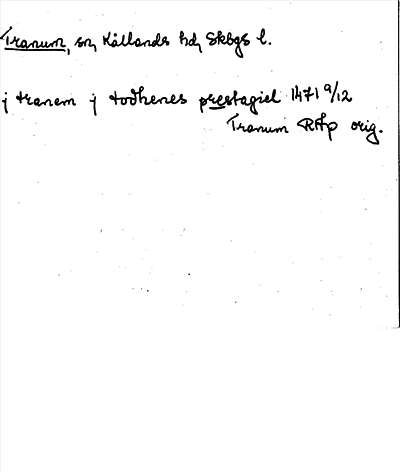 Tranum, sn, Kållands hd, Skbgs l.
j tranem j todhenes prestagiel 1471 9/12
Tranum RAp orig.